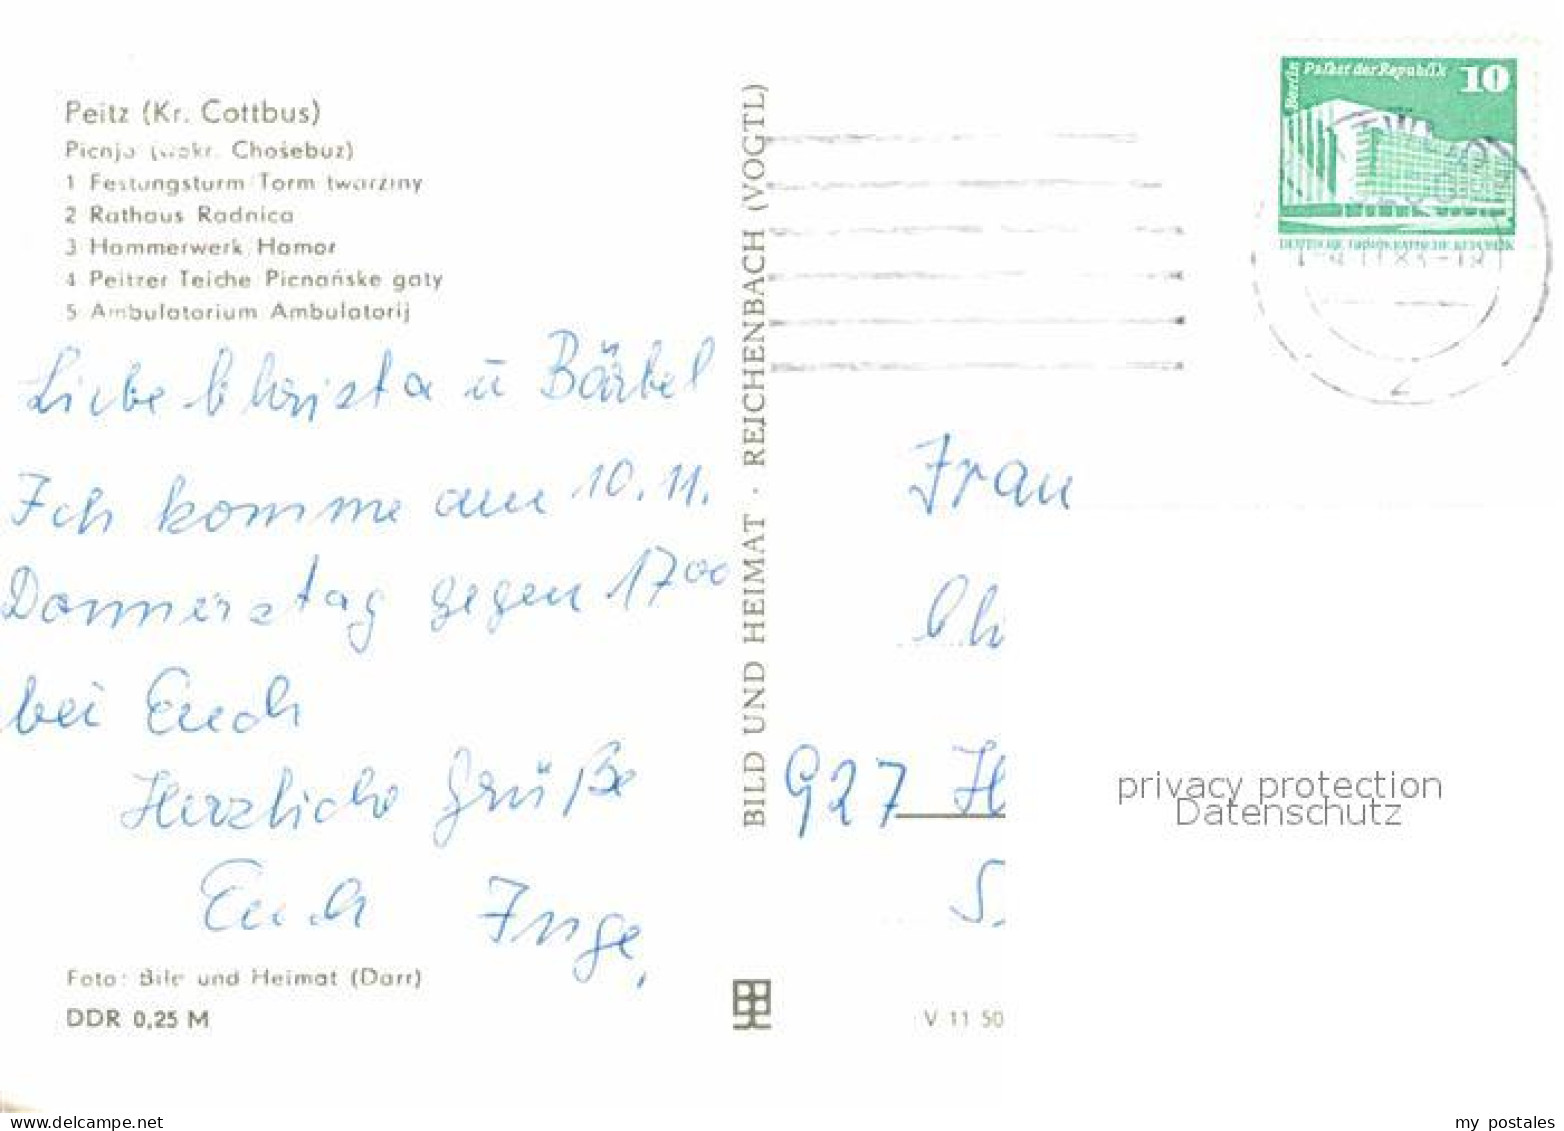 Peitz (Kr. Cottbus)
Picnjo (wokr. Chośebuz)
1 Festungsturm Torm twarźiny
2 Rathaus Radnica
3 Hammerwerk Hamor
4 Peitzer Teiche Picnańske gaty
5 Ambulatorium Ambulatorij
Liebe Christa u Bärbel
Ich komme am 10.11.
Donnerstag gegen 17⁰⁰
bei Euch
Herzliche Grüße
Euch Inge,
Foto: Bild und Heimat (Darr)
DDR 0,25 M
BILD UND HEIMAT · REICHENBACH (VOGTL)
Berlin Palast der Republik 10
DEUTSCHE DEMOKRATISCHE REPUBLIK
Frau
Ch
927 H
S.
V 11 50
privacy protection
Datenschutz
www.delcampe.net
my_postales